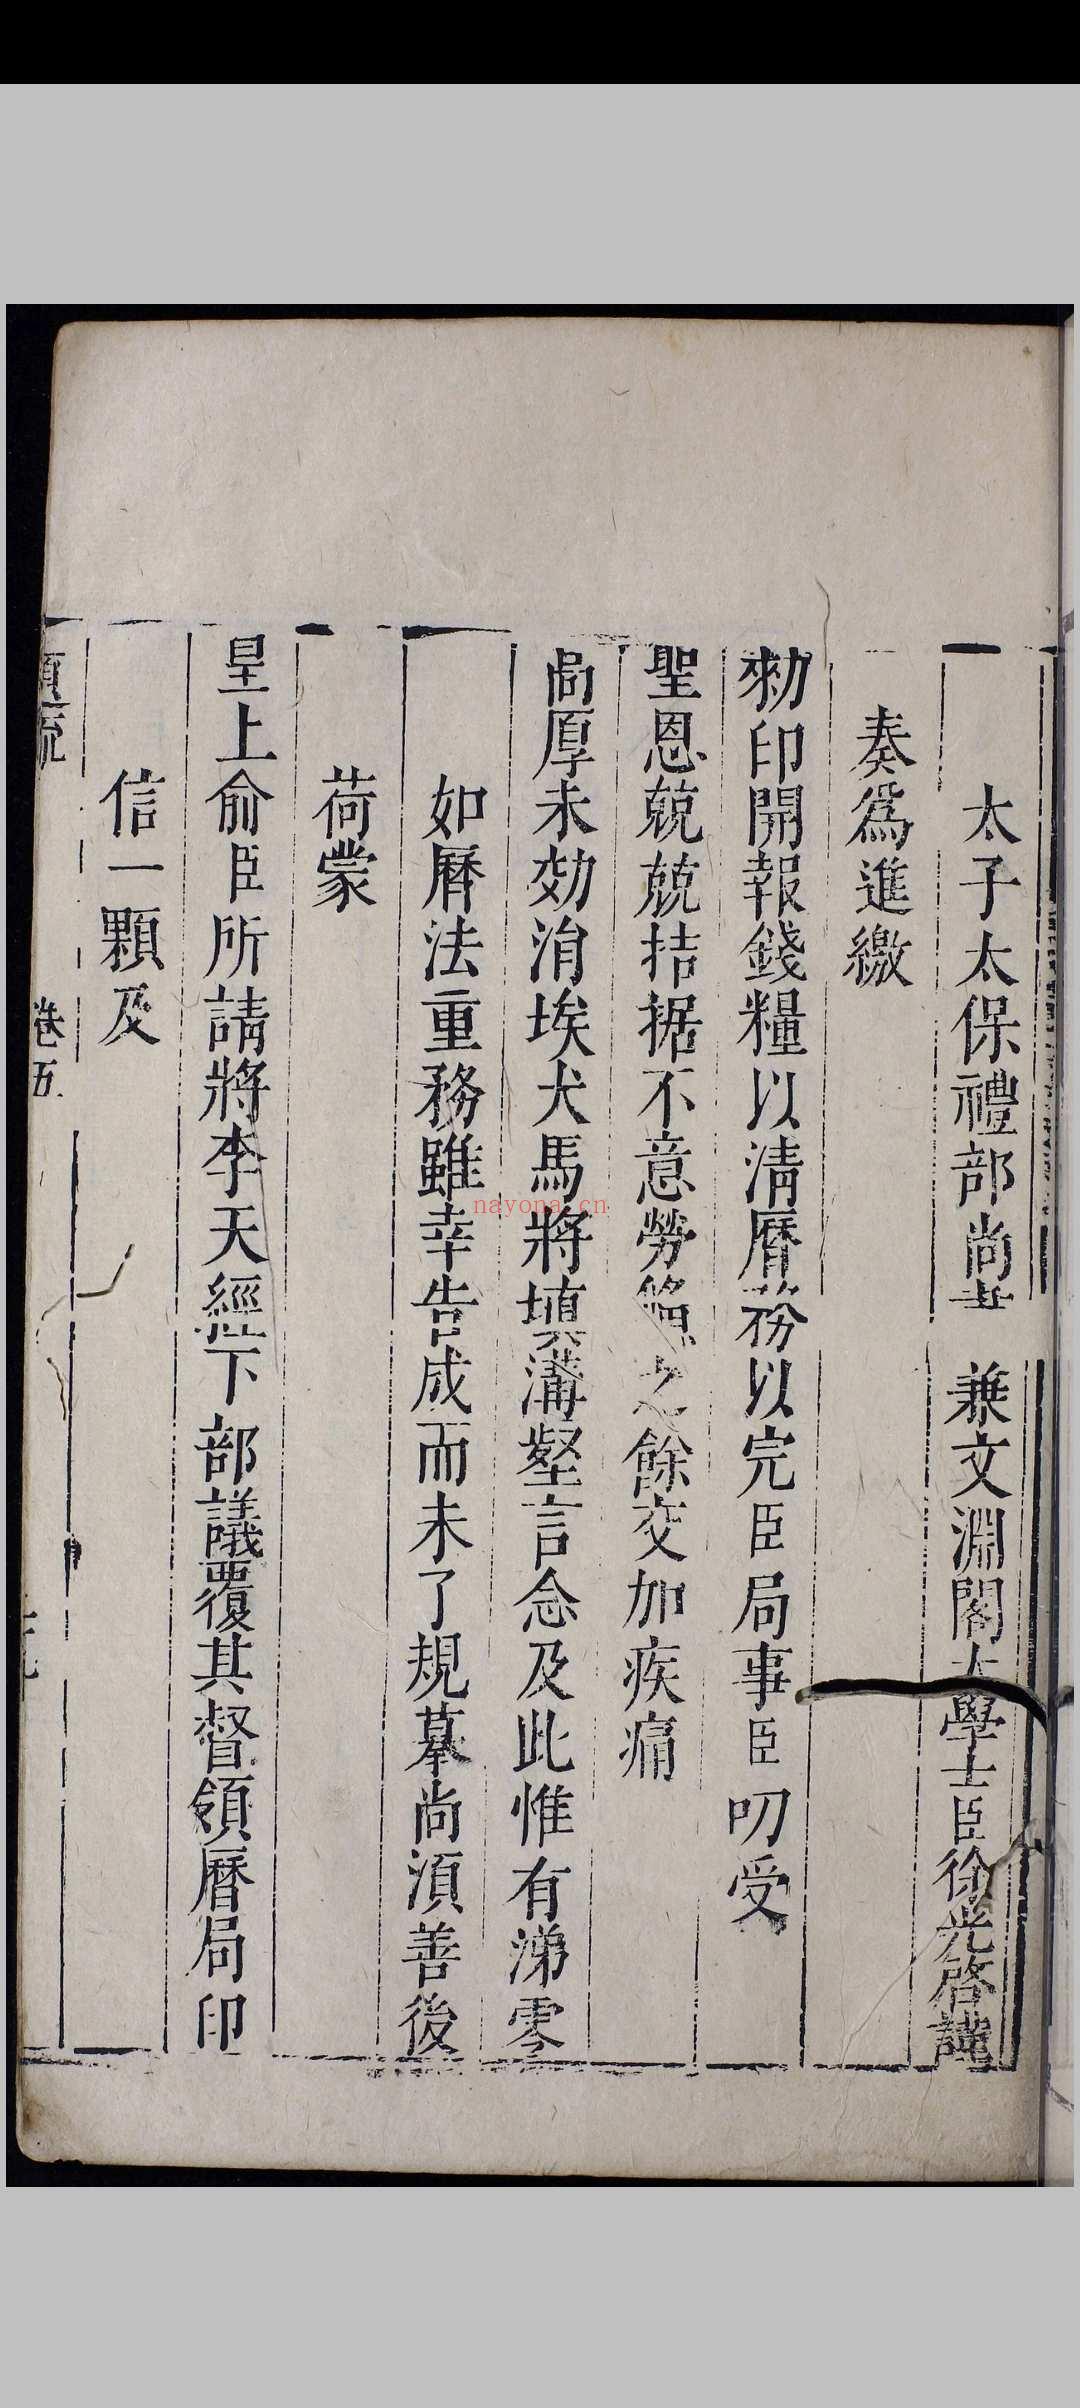 太子太保禮部尚書兼文淵閣大學士臣徐光啓謹
奏爲進繳
勑印開報錢糧以清曆務以完臣局事臣叨受
聖恩兢兢拮据不意勞之餘交加疾痛
高厚未効涓埃犬馬將塡溝壑言念及此惟有涕零
如曆法重務雖幸告成而未了規摹尚須善後
荷蒙
皇上俞臣所請將李天經下部議覆其督領曆局印
信一顆及
卷五
nayona.cn